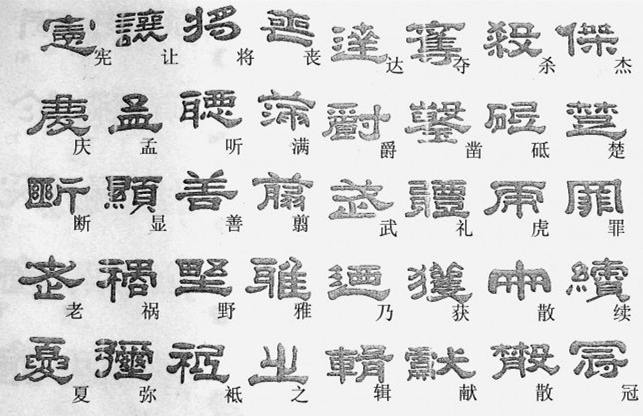 憲 讓 将 喪 達 奪 殺 傑
宪 让 将 丧 达 夺 杀 杰
慶 孟 聽 滿 爵 鑿 砥 楚
庆 孟 听 满 爵 凿 砥 楚
斷 顯 善 翦 武 禮 虎 罪
断 显 善 翦 武 礼 虎 罪
老 禍 野 雅 迺 獲 續
老 祸 野 雅 乃 获 散 续
夏 彌 祗 之 輯 獻 散 冠
夏 弥 祗 之 辑 献 散 冠